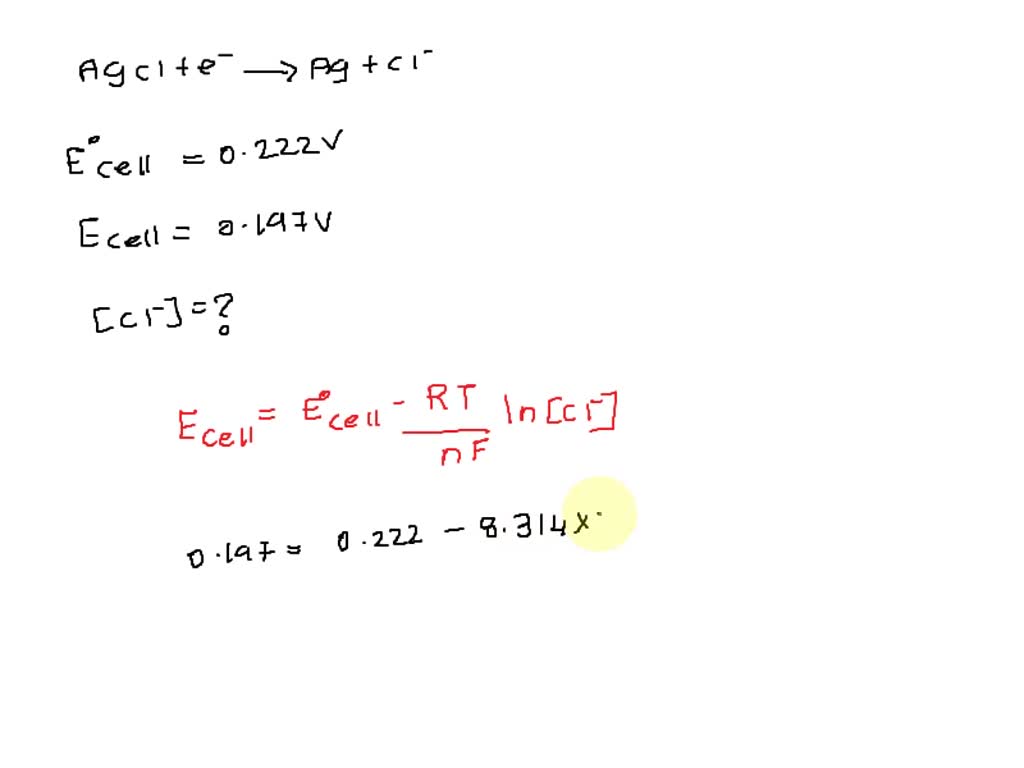 AgCl + e⁻ → Ag + Cl⁻
E°cell = 0.222V
Ecell = 0.197V
[Cl⁻] = ?
Ecell = E°cell - RT/nF ln[Cl⁻]
0.197 = 0.222 - 8.314×